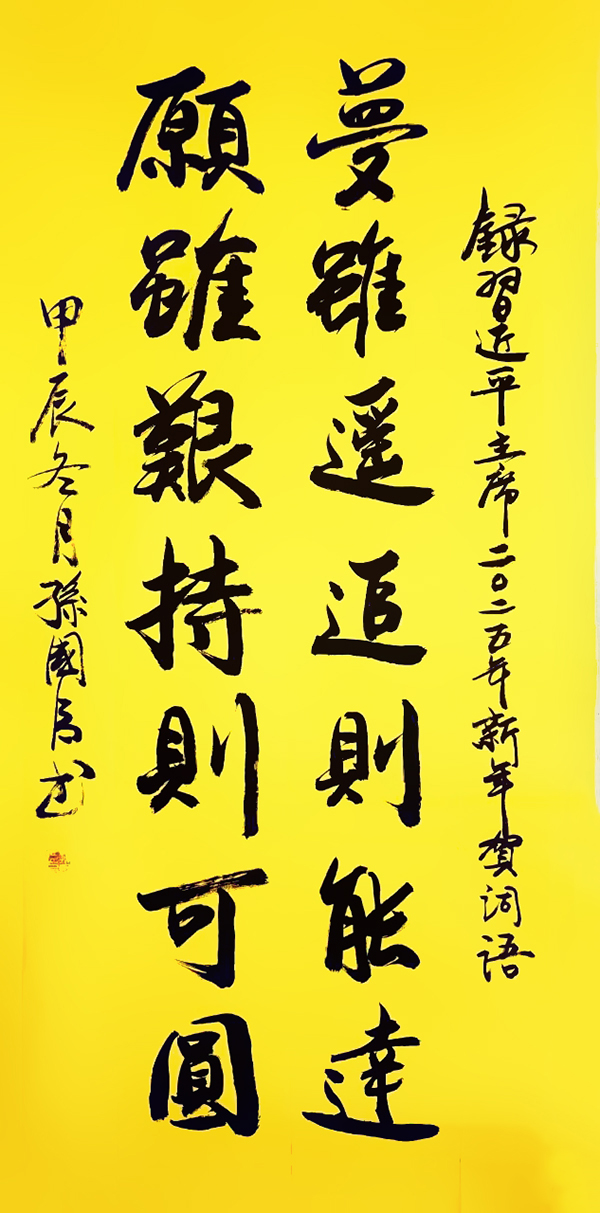 錄習近平主席二〇二五年新年賀詞語
夢雖遥追則能達
願雖艱持則可圓
甲辰冬月孫國"書